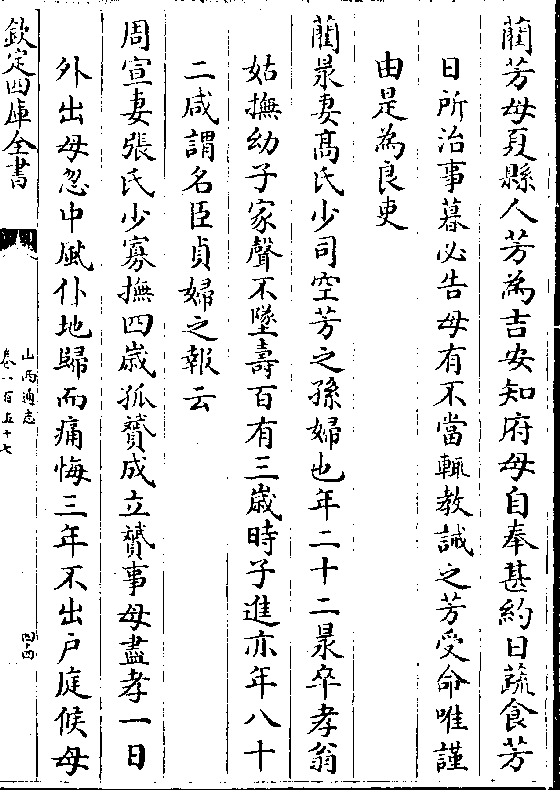 藺芳母夏縣人芳為吉安知府母自奉甚約日蔬食芳
日所治事暮必告母有不當輒教誡之芳受命唯謹
由是為良吏
藺㬌妻髙氏少司空芳之孫婦也年二十二㬌卒孝翁
姑撫幼子家聲不墜壽百有三歲時子進亦年八十
二咸謂名臣貞婦之報云
周宣妻張氏少寡撫四歲孤贇成立贇事母盡孝一日
外出母忽中風仆地歸而痛悔三年不出戶庭候母
欽定四庫全書
山西通志
卷一百五十七
四十四